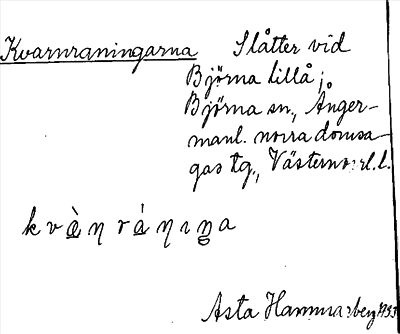 Kvarnraningarna Slåtter vid
Björna lillå;
Björna sn., Ånger-
manl. norra domsa-
gas tg., Västerno: rl. l.
kvàn ránıŋa
Asta Hammarberg